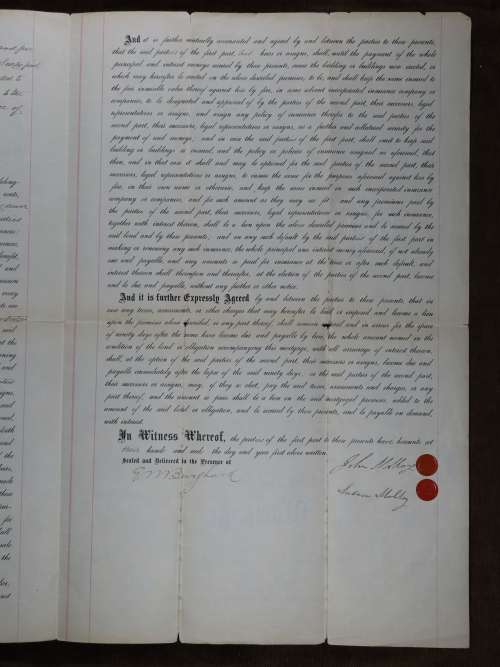 And it is further mutually covenanted and agreed by and between the parties to these presents,
that the said parties of the first part, heirs or assigns, shall, until the payment of the whole
principal and interest moneys secured by these presents, cause the building or buildings now erected, or
which may hereafter be erected on the above described premises, to be, and shall keep the same insured to
the full insurable value thereof against loss by fire, in some solvent incorporated insurance company or
companies, to be designated and approved of by the parties of the second part, their successors, legal
representatives or assigns, and assign any policy of insurance therefor to the said parties of the
second part, their successors, legal representatives or assigns, as a further and collateral security for the
payment of said moneys; and in case the said parties of the first part, shall omit to keep said
building or buildings so insured, and the policy or policies of insurance assigned as aforesaid, that
then, and in that case it shall and may be optional for the said parties of the second part, their
successors, legal representatives or assigns, to insure the same for the purpose aforesaid against loss by
fire, in their own name or otherwise, and keep the same insured in such incorporated insurance
company or companies, and for such amount as they may see fit: and any premiums paid by
the parties of the second part, their successors, legal representatives or assigns, for such insurance,
together with interest thereon, shall be a lien upon the above described premises and be secured by the
said bond and by these presents; and on any such default by the said parties of the first part in
making or renewing any such insurance, the whole principal and interest money aforesaid, if not already
due and payable, and any amounts so paid for insurance at the time or after such default, and
interest thereon shall, thereupon and thereafter, at the election of the parties of the second part, become
and be due and payable, without further or other notice.
And it is further Expressly Agreed by and between the parties to these presents that in
case any taxes, assessments, or other charges that may hereafter be laid or imposed and become a lien
upon the premises above described, or any part thereof, shall remain unpaid and in arrear for the space
of ninety days after the same have become due and payable by law, the whole amount named in the
condition of the bond or obligation accompanying this mortgage, with all arrearage of interest thereon,
shall, at the option of the said parties of the second part, their successors or assigns, become due and
payable immediately after the lapse of the said ninety days; or the said parties of the second part,
their successors or assigns, may, if they so elect, pay the said taxes, assessments and charges, or any
part thereof, and the amount so paid shall be a lien on the said mortgaged premises, added to the
amount of the said bond or obligation, and be secured by these presents, and be payable on demand,
with interest.
In Witness Whereof, the parties of the first part to these presents have hereunto set
their hands and seals the day and year first above written.
Sealed and Delivered in the Presence of
John
Susan